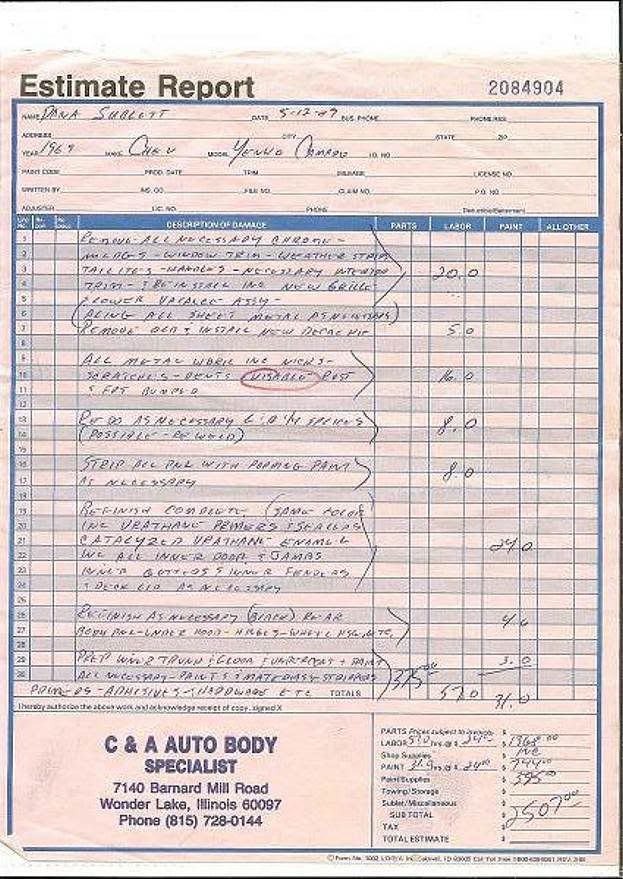 Estimate Report 2084904
NAME DANA DATE 5-12-89 BUS. PHONE PHONE RES.
ADDRESS CITY STATE ZIP
YEAR 1969 MAKE CHEV MODEL YENKO CAMARO I.D. NO.
PAINT CODE PROD. DATE TRIM MILEAGE LICENSE NO.
WRITTEN BY INS. CO. FILE NO. CLAIM NO. P.O. NO.
ADJUSTER LIC. NO. PHONE
DESCRIPTION OF DAMAGE PARTS LABOR PAINT ALL OTHER
1 REMOVE ALL NECESSARY CHROME -
2 - WINDOW TRIM - WEATHER STRIP
3 - HANDLES - NECESSARY INTERIOR 20.0
4 TRIM - & REINSTALL INC NEW GRILLE
5 LOWER ASSY -
6 ALL SHEET METAL AS NECESSARY
7 REMOVE & INSTALL NEW DECAL KIT 5.0
8
9 ALL METAL WORK INC NICKS -
10 SCRATCHES - DENTS (VISABLE) RUST 16.0
11
12
13 RE DO AS NECESSARY 8.0
14 (POSSIBLE - RE WELD)
15
16 STRIP ALL PNL WITH PAINT 8.0
17 AS NECESSARY
18
19 REFINISH COMPLETE (SAME COLOR
20 INC URATHANE PRIMERS & SEALERS
21 CATALYZED URATHANE ENAMEL 24.0
22 INC ALL INNER DOOR & JAMBS
23 INNER & INNER FENDERS
24 & DECK LID AS NECESSARY
25
26 REFINISH AS NECESSARY (BLACK) REAR 4.0
27 BODY PNL - UNDER HOOD - HINGES - WHEEL HSG. ETC.
28
29 PREP INNER TRUNK & FLOOR + PAINT 3.0
30 ALL NECESSARY - PAINTS & MATERIALS
PRIMERS - ADHESIVES - HARDWARE ETC TOTALS 57.0 31.0
I hereby authorize the above work and acknowledge receipt of copy. signed X
C & A AUTO BODY
SPECIALIST
7140 Barnard Mill Road
Wonder Lake, Illinois 60097
Phone (815) 728-0144
PARTS Prices subject to invoice $
LABOR 57.0 hrs. @ $ 24.00 $ 1368.00
Shop Supplies INC
PAINT 31.0 hrs. @ $ 24.00 $ 744.00
Paint/Supplies $ 395.00
Towing/Storage $
Sublet/Miscellaneous $
SUB TOTAL $ 2507.00
TAX $
TOTAL ESTIMATE $